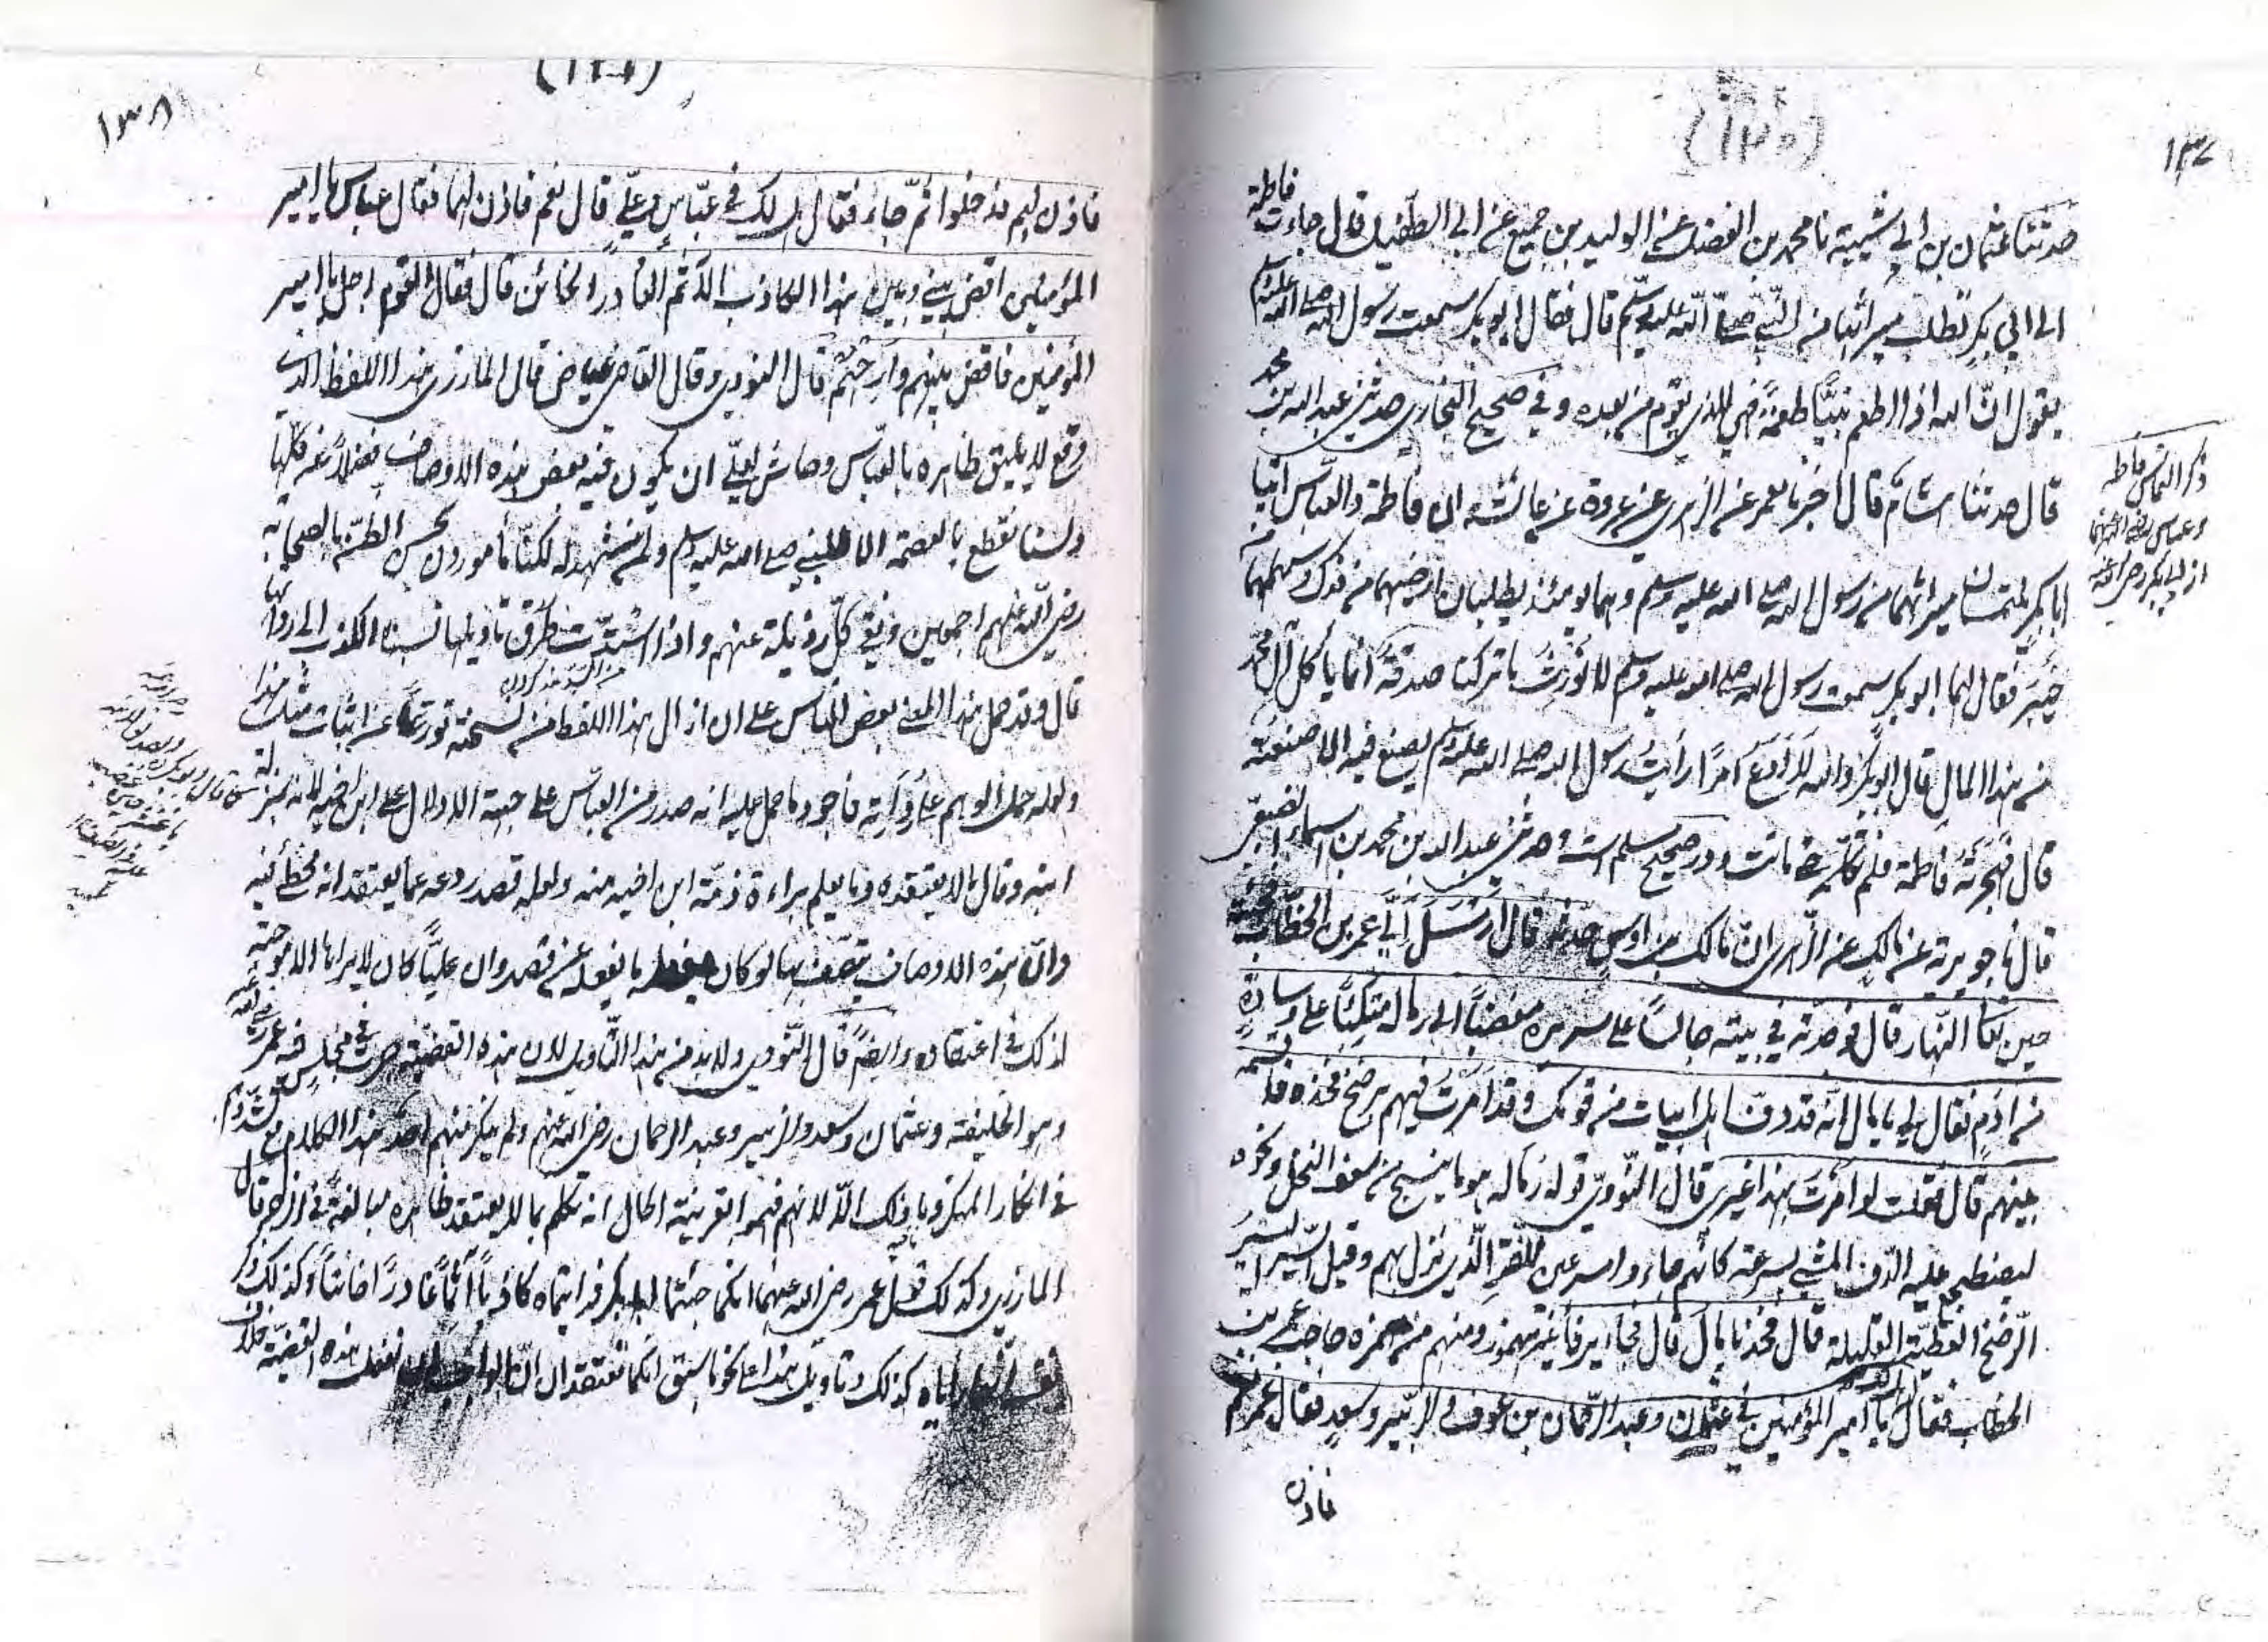 ١٣٧
(١٣٠)
حدثنا عثمان بن ابي شيبة نا محمد بن الفضيل عن الوليد بن جميع عن ابي الطفيل قال جاءت فاطمة
الى ابي بكر تطلب ميراثها من النبي صلى الله عليه وسلم قال فقال ابو بكر سمعت رسول الله صلى الله عليه وسلم
يقول ان الله اذا اطعم نبيًّا طعمةً فهي للذي يقوم من بعده وفي صحيح البخاري حدثني عبد الله بن محمد
قال حدثنا هشام قال اخبرنا معمر عن الزهري عن عروة عن عائشة ان فاطمة والعباس اتيا
ابا بكر يلتمسان ميراثهما من رسول الله صلى الله عليه وسلم وهما يومئذ يطلبان ارضيهما من فدك وسهمهما من
خيبر فقال لهما ابو بكر سمعت رسول الله صلى الله عليه وسلم لا نُورَثُ ما تركنا صدقةٌ انما ياكل آل محمد
من هذا المال قال ابو بكر والله لا أدَعُ امرًا رأيتُ رسول الله صلى الله عليه وسلم يصنع فيه الا صنعته
قال فَهَجَرَتْهُ فاطمة فلم تكلمه حتى ماتت ودر صحيح مسلم است وحدثني عبد الله بن محمد بن اسماء الضبعي
قال نا جويرية عن مالك عن الزهري انّ مالك بن اوس حدثه قال ارسَلَ اِلَيَّ عمر بن الخطاب فجئته
حين تعالى النهار قال فوجدته في بيته جالسًا على سريره مفضيًا الى رماله متكئًا على وسادةٍ
من ادَمٍ فقال لي يا مال انه قد دفّ اهل ابيات من قومك وقد امرت فيهم برضخ فخذه فاقسمه
بينهم قال فقلت لو امَرْتَ بهذا غيري قال النووي قوله رماله هو ما ينسج من سعف النخل ونحوه
ليضطجع عليه الدفّ المشي بسرعة كانهم جاءوا مسرعين للضر الذي نزل بهم وقيل السير اليسير
الرضخ العطية القليلة قال فخذه يا مالُ قال فجاء يرفا غير مهموز ومنهم من همزه حاجب عمر بن
الخطاب فقال يا امير المؤمنين في عثمان وعبد الرحمان بن عوف والزبير وسعد فقال عمر نعم
فاذن
ذكر التماس فاطمه
وعباس رضي الله عنهما
از ابي بكر رضي الله عنه
١٣٨
فاذن لهم فدخلوا ثمّ جاء فقال هل لك في عبّاسٍ وعليٍّ قال نعم فاذن لهما فقال عباس يا امير
المؤمنين اقض بيني وبين هذا الكاذب الآثم الغادر الخائن قال فقال القوم اجل يا امير
المؤمنين فاقض بينهم وارحهم قال النووي وقال القاضي عياض قال المازري هذا اللفظ الذي
وقع لا يليق ظاهره بالعباس وحاش لعليّ ان يكون فيه بعض هذه الاوصاف فضلًا عن كلّها
ولسنا نقطع بالعصمة الا للنبي صلى الله عليه وسلم ولمن شهد له لكنّا مأمورون بحسن الظنّ بالصحابة
رضي الله عنهم اجمعين ونفي كلّ رذيلة عنهم واذا انسدّت طُرُق تاويلها نسبنا الكذب الى رواتها
قال وقد حمل هذا المعنى بعض الناس على ان ازال هذا اللفظ من نسخته تورّعًا عن اثبات مثل هذا
ولعله حمل الوهم على رُواته فاجود ما حمل عليه انه صدر من العباس على جهة الادلال على ابن اخيه لانه بمنزلة
ابنه وقال ما لا يعتقده وما يعلم براءة ذمّة ابن اخيه منه ولعله قصد ردعه عما يعتقد انه مخطئ فيه
وانّ هذه الاوصاف يتّصف بها لو كان يفعل ما يفعله عن قصد وان عليًّا كان لا يراها الا موجبة
لذلك في اعتقاده وايضًا قال النووي ولا بد من هذا التاويل لان هذه القضية جرت في مجلس فيه عمر رضي الله عنه
وهو الخليفة وعثمان وسعد والزبير وعبد الرحمان رضي الله عنهم ولم ينكر منهم احد هذا الكلام مع تشدّدهم
في انكار المنكر وما ذلك الا لانهم فهموا بقرينة الحال انه تكلم بما لا يعتقد ظاهره مبالغةً في الزجر قال
المازري وكذلك قول عمر رضي الله عنه انكما جئتما ابا بكر فرايتماه كاذبًا آثمًا غادرًا خائنًا وكذلك ذكر
كذلك وتاويل هذا على نحو ما سبق انكما تعتقدان ان الواجب ان نفعل في هذه القضية خلاف